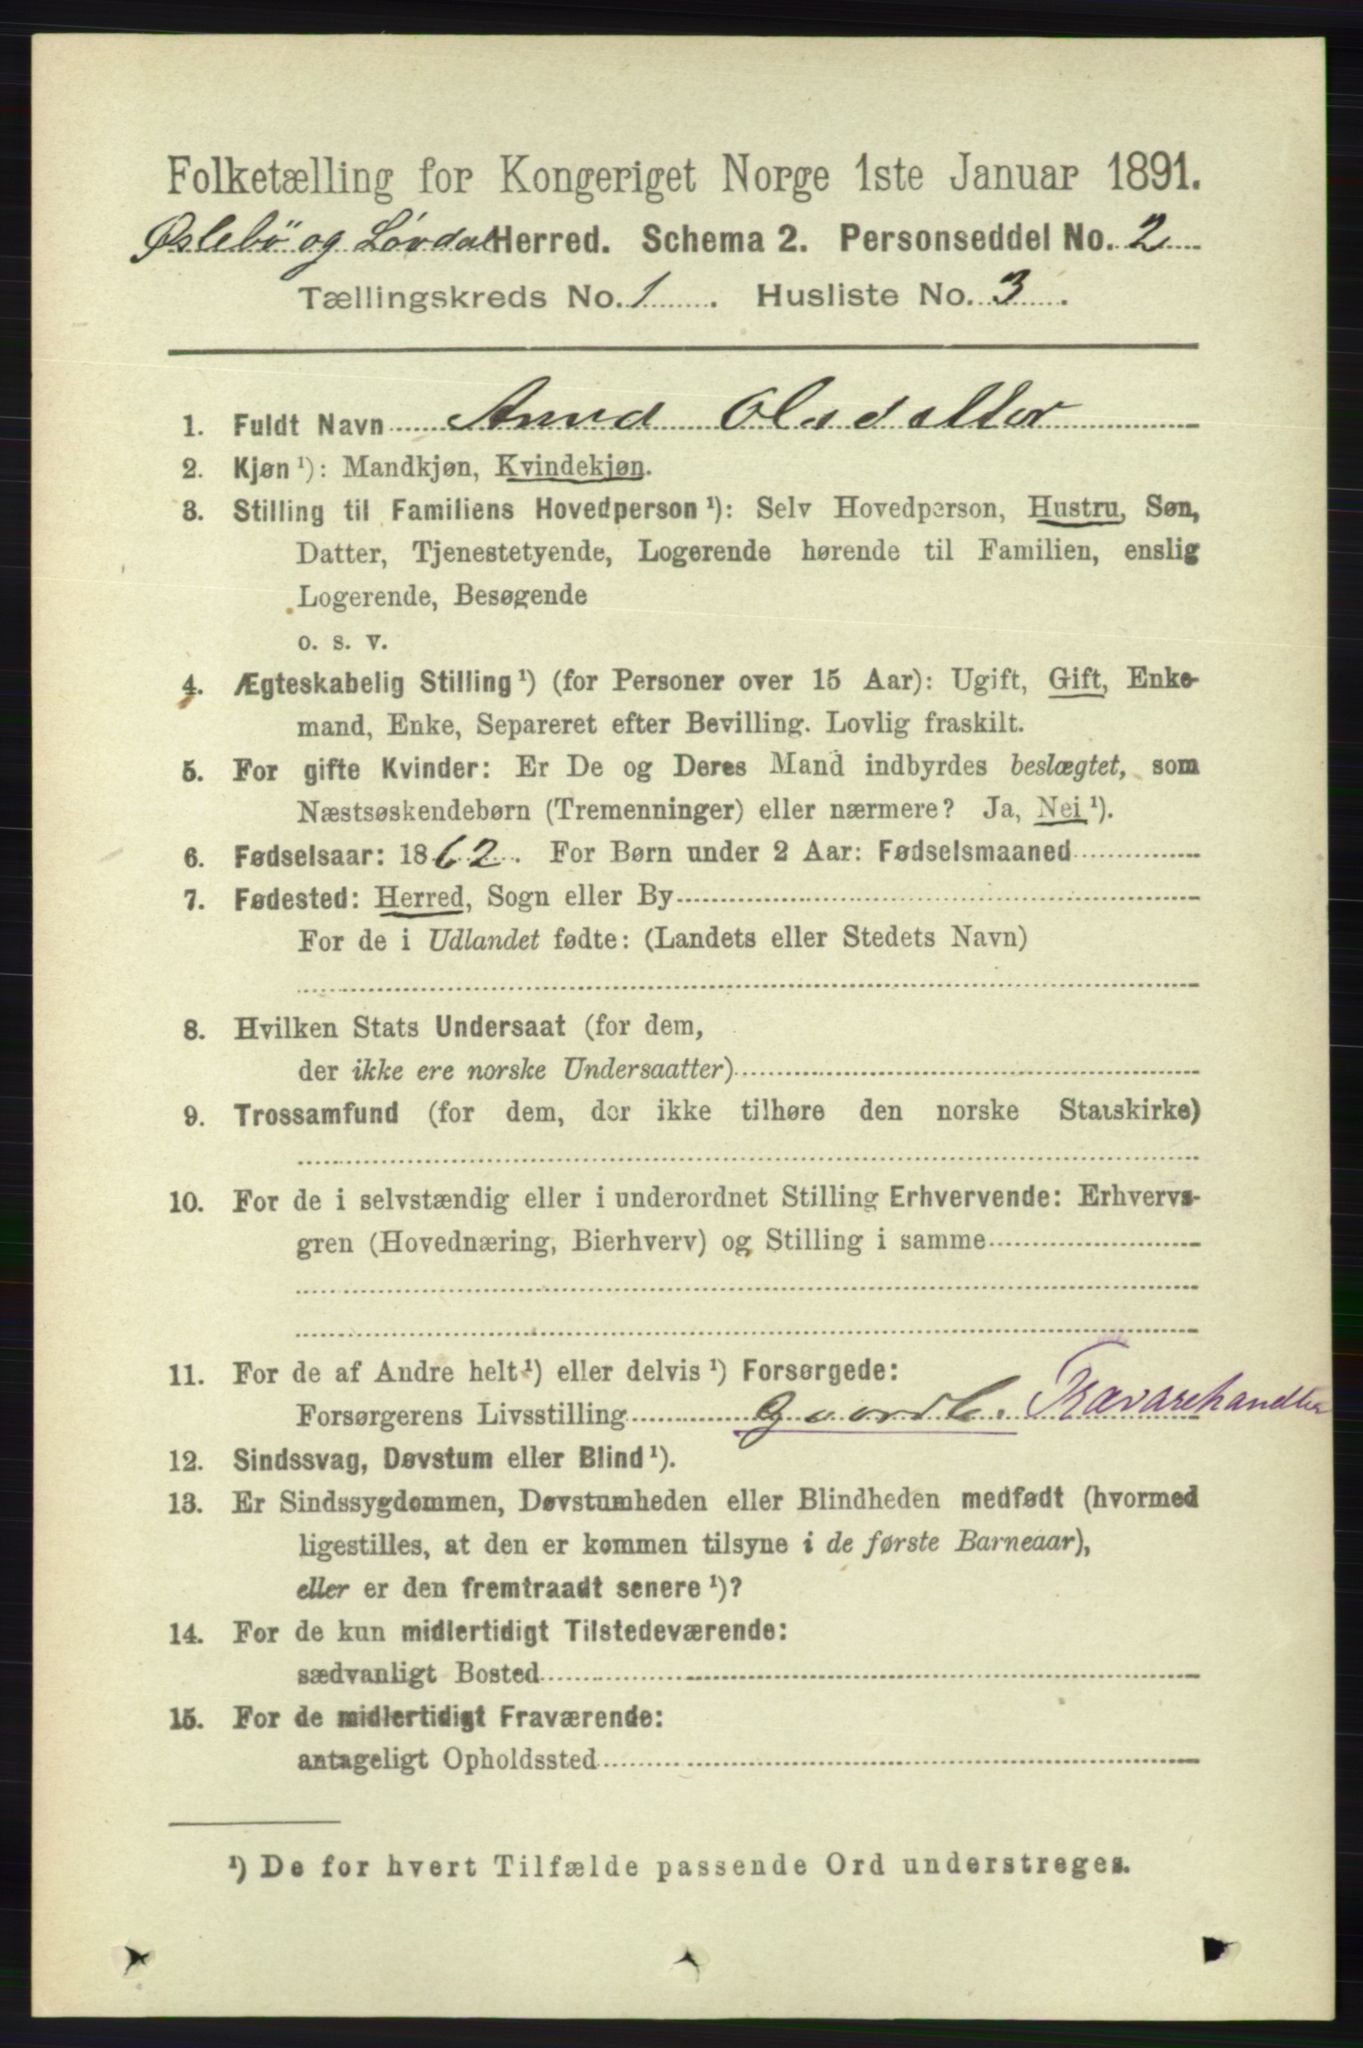 Folketælling for Kongeriget Norge 1ste Januar 1891.
Øslebö og Løvdal Herred. Schema 2. Personseddel No. 2
Tællingskreds No. 1. Husliste No. 3.
1. Fuldt Navn Anna Olsdatter
2. Kjøn ¹): Mandkjøn, Kvindekjøn.
3. Stilling til Familiens Hovedperson ¹): Selv Hovedperson, Hustru, Søn,
Datter, Tjenestetyende, Logerende hørende til Familien, enslig
Logerende, Besøgende
o. s. v.
4. Ægteskabelig Stilling ¹) (for Personer over 15 Aar): Ugift, Gift, Enke-
mand, Enke, Separeret efter Bevilling. Lovlig fraskilt.
5. For gifte Kvinder: Er De og Deres Mand indbyrdes beslægtet, som
Næstsøskendebørn (Tremenninger) eller nærmere? Ja, Nei ¹).
6. Fødselsaar: 1862. For Børn under 2 Aar: Fødselsmaaned
7. Fødested: Herred, Sogn eller By
For de i Udlandet fødte: (Landets eller Stedets Navn)
8. Hvilken Stats Undersaat (for dem,
der ikke ere norske Undersaatter)
9. Trossamfund (for dem, der ikke tilhøre den norske Statskirke)
10. For de i selvstændig eller i underordnet Stilling Erhvervende: Erhvervs-
gren (Hovednæring, Bierhverv) og Stilling i samme
11. For de af Andre helt ¹) eller delvis ¹) Forsørgede:
Forsørgerens Livsstilling Gaardb. Trævarehandler
12. Sindssvag, Døvstum eller Blind ¹).
13. Er Sindssygdommen, Døvstumheden eller Blindheden medfødt (hvormed
ligestilles, at den er kommen tilsyne i de første Barneaar),
eller er den fremtraadt senere ¹)?
14. For de kun midlertidigt Tilstedeværende:
sædvanligt Bosted
15. For de midlertidigt Fraværende:
antageligt Opholdssted
¹) De for hvert Tilfælde passende Ord understreges.